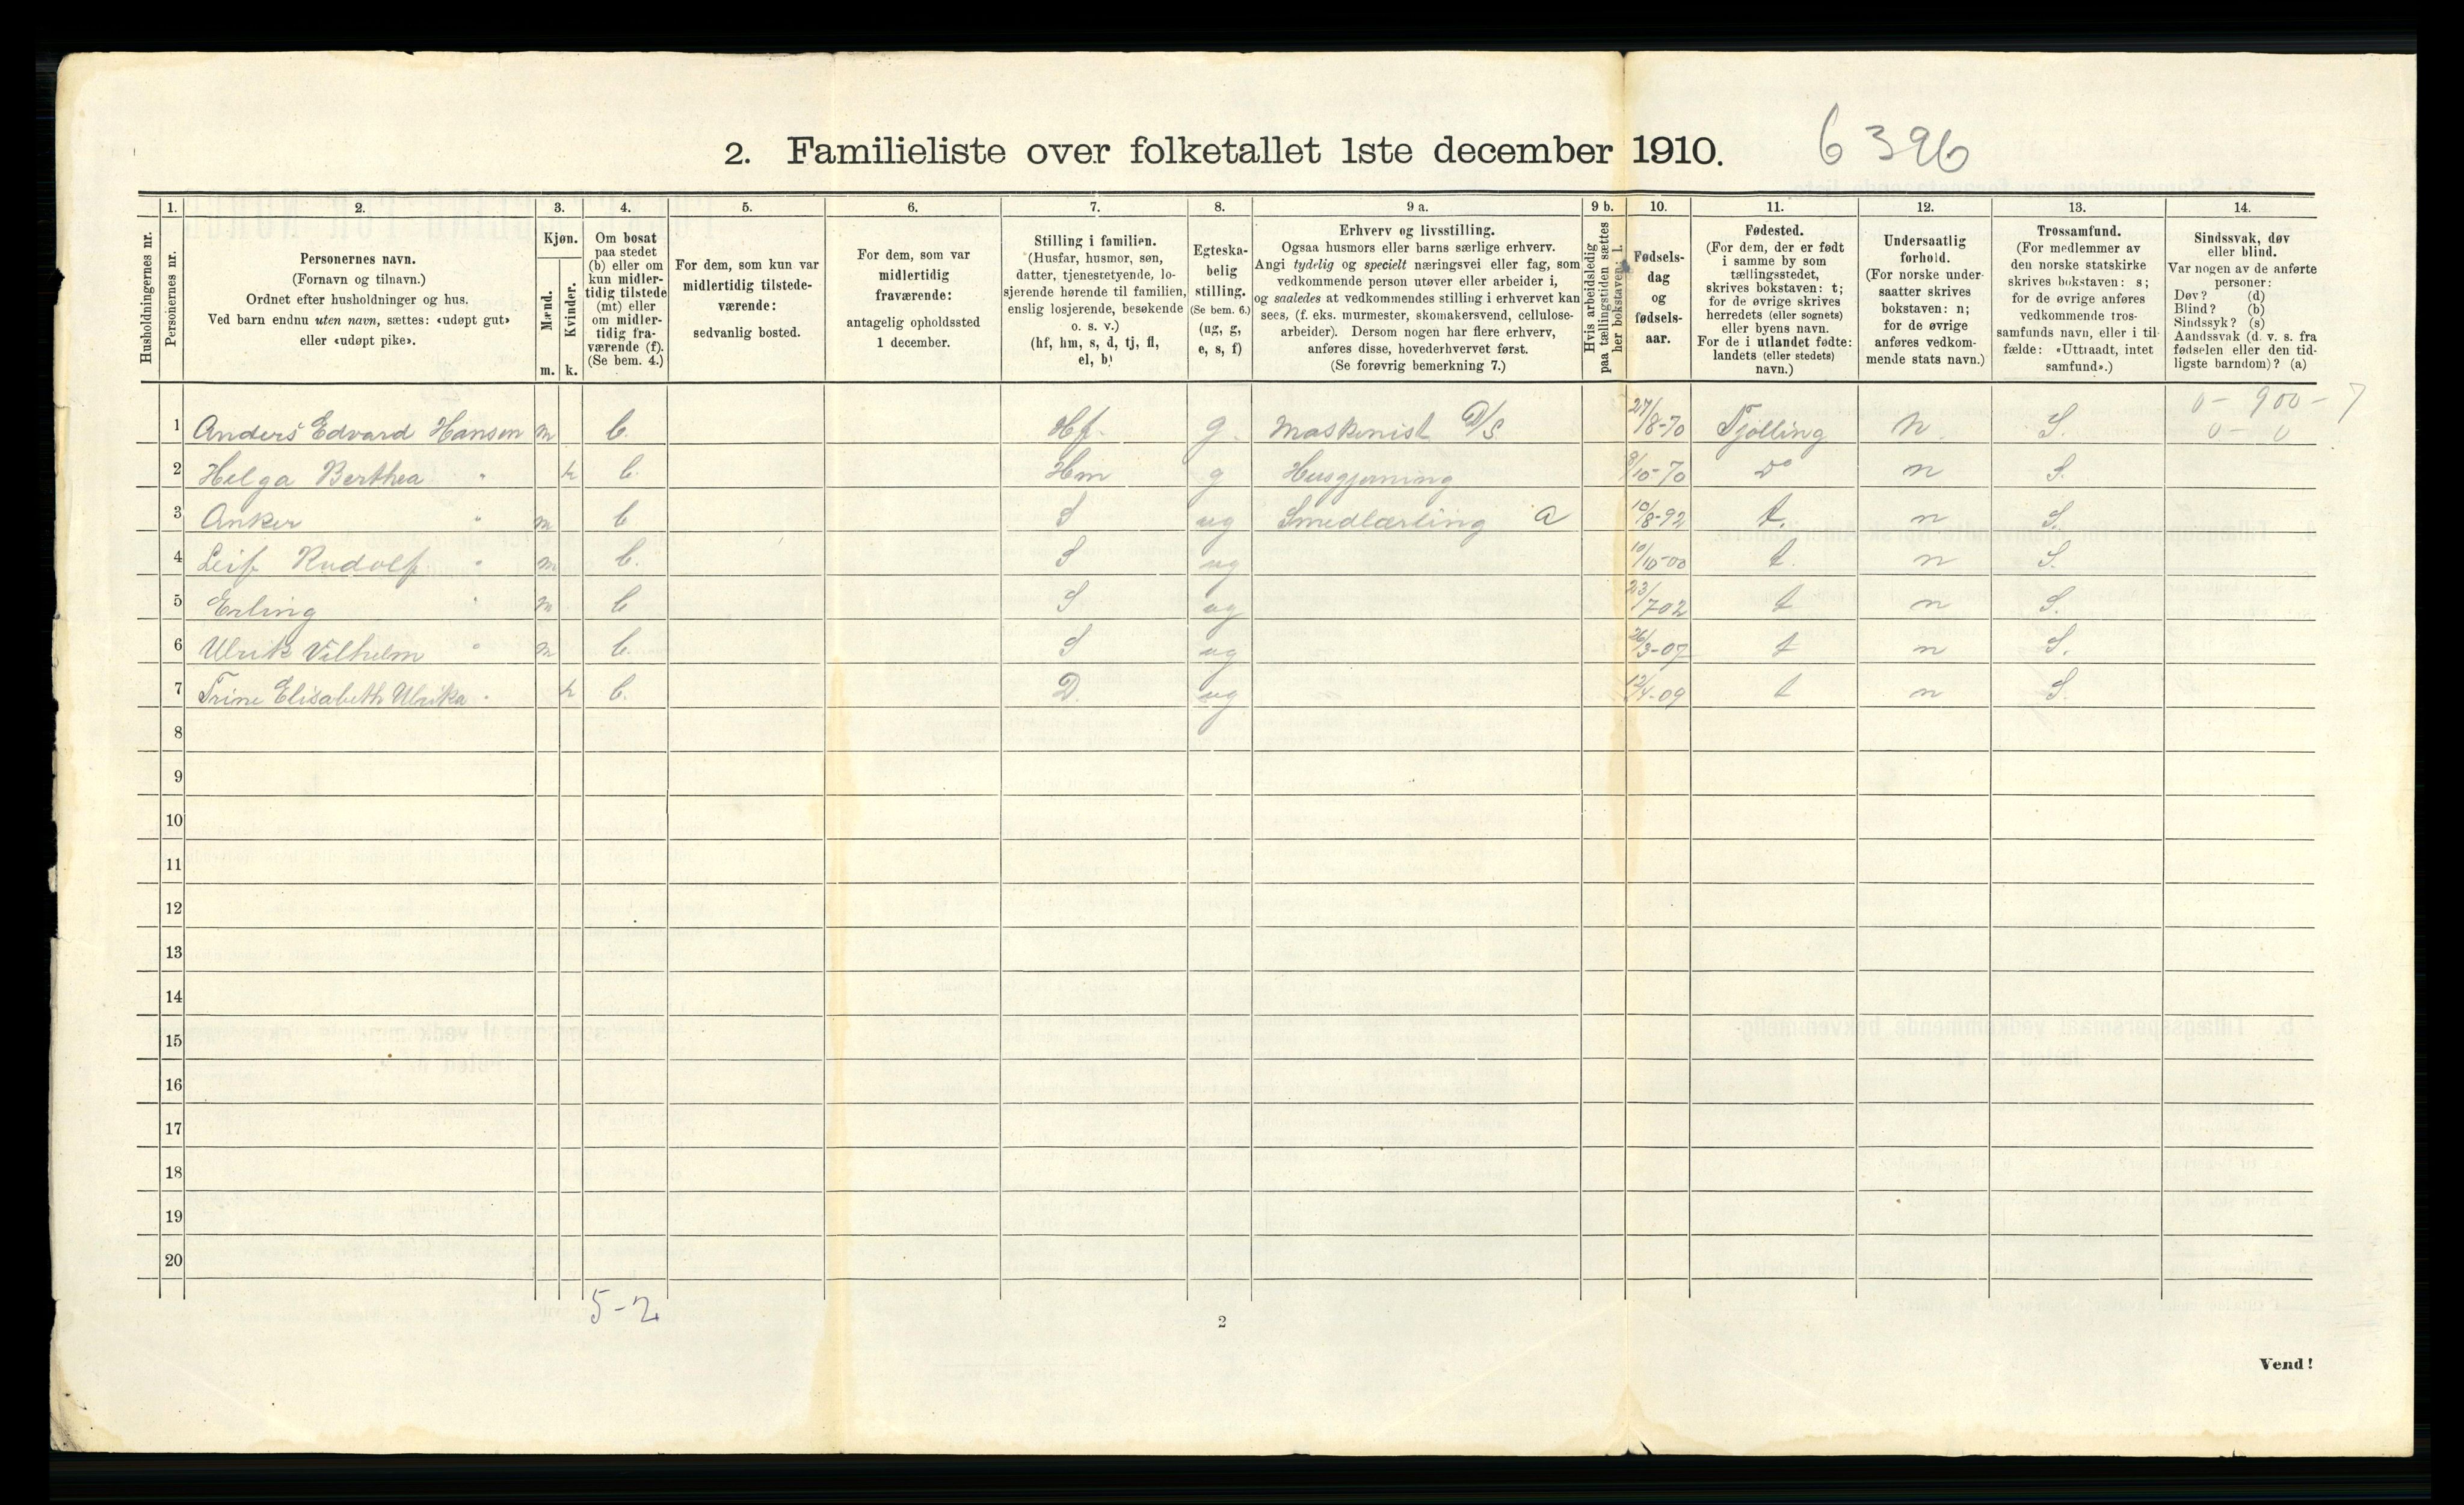 2. Familieliste over folketallet 1ste december 1910.
6396
Husholdningernes nr.
1.
Personernes nr.
2.
Personernes navn.
(Fornavn og tilnavn.)
Ordnet efter husholdninger og hus.
Ved barn endnu uten navn, sættes: «udøpt gut»
eller «udøpt pike».
3.
Kjøn.
Mænd.
m.
Kvinder.
k.
4.
Om bosat
paa stedet
(b) eller om
kun midler-
tidig tilstede
(mt) eller
om midler-
tidig fra-
værende (f).
(Se bem. 4.)
5.
For dem, som kun var
midlertidig tilstede-
værende:
sedvanlig bosted.
6.
For dem, som var
midlertidig
fraværende:
antagelig opholdssted
1 december.
7.
Stilling i familien.
(Husfar, husmor, søn,
datter, tjenestetyende, lo-
sjerende hørende til familien,
enslig losjerende, besøkende
o. s. v.)
(hf, hm, s, d, tj, fl,
el, b)
8.
Egteska-
belig
stilling.
(Se bem. 6.)
(ug, g,
e, s, f)
9 a.
Erhverv og livsstilling.
Ogsaa husmors eller barns særlige erhverv.
Angi tydelig og specielt næringsvei eller fag, som
vedkommende person utøver eller arbeider i,
og saaledes at vedkommendes stilling i erhvervet kan
sees, (f. eks. murmester, skomakersvend, cellulose-
arbeider). Dersom nogen har flere erhverv,
anføres disse, hovederhvervet først.
(Se forøvrig bemerkning 7.)
9 b.
Hvis arbeidsledig
paa tællingstiden sættes
her bokstaven: l.
10.
Fødsels-
dag
og
fødsels-
aar.
11.
Fødested.
(For dem, der er født
i samme by som
tællingsstedet,
skrives bokstaven: t;
for de øvrige skrives
herredets (eller sognets)
eller byens navn.
For de i utlandet fødte:
landets (eller stedets)
navn.)
12.
Undersaatlig
forhold.
(For norske under-
saatter skrives
bokstaven: n;
for de øvrige
anføres vedkom-
mende stats navn.)
13.
Trossamfund.
(For medlemmer av
den norske statskirke
skrives bokstaven: s;
for de øvrige anføres
vedkommende tros-
samfunds navn, eller i til-
fælde: «Uttraadt, intet
samfund».)
14.
Sindssvak, døv
eller blind.
Var nogen av de anførte
personer:
Døv? (d)
Blind? (b)
Sindssyk? (s)
Aandssvak (d. v. s. fra
fødselen eller den tid-
ligste barndom)? (a)
0 - 900 - 7
0 - 0
1 Anders Edvard Hansen m b. Hf. g. Maskinist D/S 27/8-70 Tjølling n. S.
2 Helga Berthea " k b. Hm g Husgjerning 9/10-70 Do n S.
3 Anker " m b S ug Smedlærling a 10/8-92 t. n S.
4 Leif Rudolf " m b. S ug 10/10-00 t. n S.
5 Erling " m b S ug 23/7 02 t n S.
6 Ulrik Vilhelm " m b. S ug 26/3-07 t n S.
7 Trine Elisabeth Ulrika " k b. D. ug 12/4-09 t n S.
8
9
10
11
12
13
14
15
16
17
18
19
20
5-2
2
Vend!